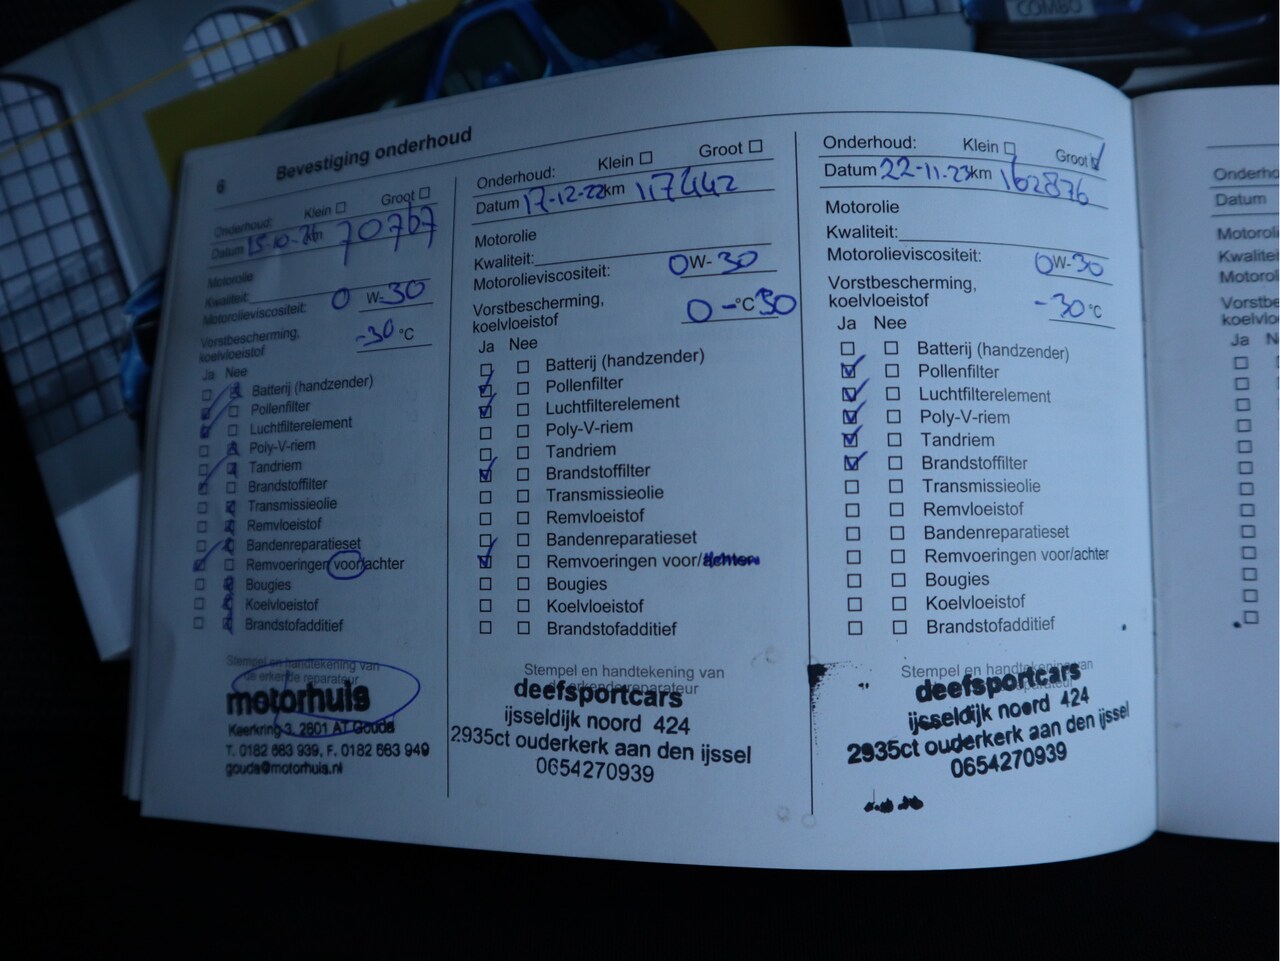 COMBO
6 Bevestiging onderhoud
Onderhoud: Klein Groot
Datum 15-10- km 70767
Motorolie
Kwaliteit:
Motorolieviscositeit: 0 W-30
Vorstbescherming,
koelvloeistof -30 °C
Ja Nee
Batterij (handzender)
Pollenfilter
Luchtfilterelement
Poly-V-riem
Tandriem
Brandstoffilter
Transmissieolie
Remvloeistof
Bandenreparatieset
Remvoeringen voor/achter
Bougies
Koelvloeistof
Brandstofadditief
Stempel en handtekening van
de erkende reparateur
motorhuis
Kaarkring 3, 2801 AT Gouda
T. 0182 683 939, F. 0182 683 949
gouda@motorhuis.nl
Onderhoud: Klein Groot
Datum 17-12-22 km 117442
Motorolie
Kwaliteit:
Motorolieviscositeit: 0W-30
Vorstbescherming,
koelvloeistof 0-°C 30
Ja Nee
Batterij (handzender)
Pollenfilter
Luchtfilterelement
Poly-V-riem
Tandriem
Brandstoffilter
Transmissieolie
Remvloeistof
Bandenreparatieset
Remvoeringen voor/achter
Bougies
Koelvloeistof
Brandstofadditief
Stempel en handtekening van
de erkende reparateur
deefsportcars
ijsseldijk noord 424
2935ct ouderkerk aan den ijssel
0654270939
Onderhoud: Klein Groot
Datum 22-11-23 km 162876
Motorolie
Kwaliteit:
Motorolieviscositeit: 0W-30
Vorstbescherming,
koelvloeistof -30 °C
Ja Nee
Batterij (handzender)
Pollenfilter
Luchtfilterelement
Poly-V-riem
Tandriem
Brandstoffilter
Transmissieolie
Remvloeistof
Bandenreparatieset
Remvoeringen voor/achter
Bougies
Koelvloeistof
Brandstofadditief
Stempel en handtekening van
deefsportcars
ijsseldijk noord 424
2935ct ouderkerk aan den ijssel
0654270939
Onderho
Datum
Motoroli
Kwalitei
Motorol
Vorstbe
koelvlo
Ja N